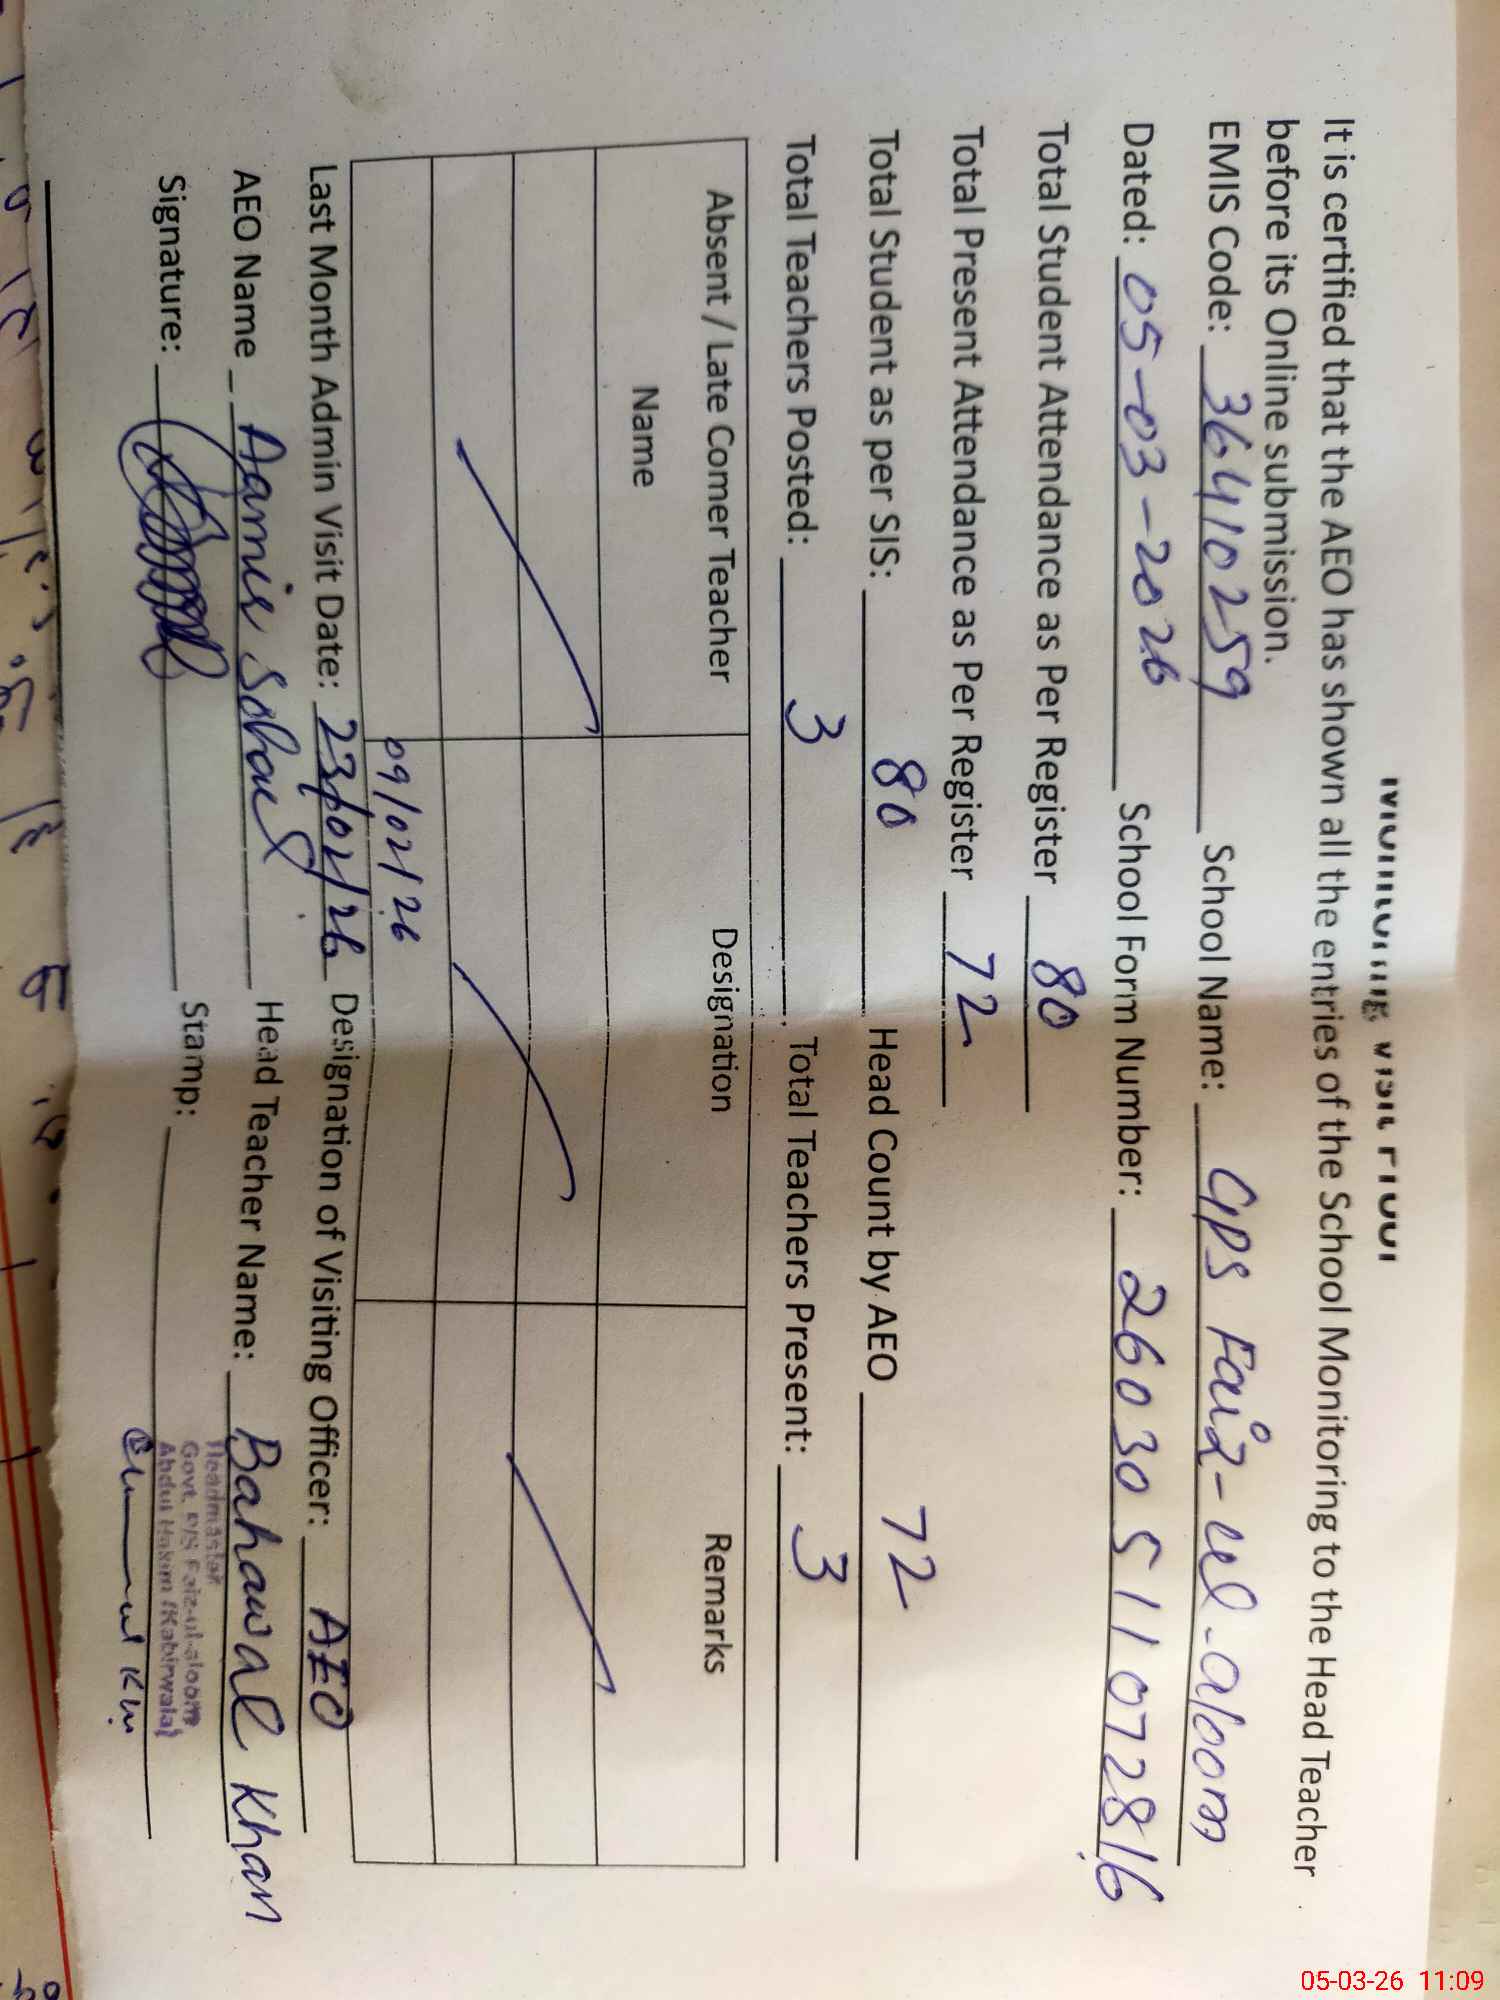 Monitoring Visit Proof
It is certified that the AEO has shown all the entries of the School Monitoring to the Head Teacher
before its Online submission.
EMIS Code: 36410259 School Name: GPS Faiz-ul-aloom
Dated: 05-03-2026 School Form Number: 26030511072816
Total Student Attendance as Per Register 80
Total Present Attendance as Per Register 72
Total Student as per SIS: 80 Head Count by AEO 72
Total Teachers Posted: 3 Total Teachers Present: 3
Absent / Late Comer Teacher Designation Remarks
Name
09/02/26
Last Month Admin Visit Date: 23/02/26 Designation of Visiting Officer: AEO
AEO Name Aamir Sohail Head Teacher Name: Bahawal Khan
Signature: Stamp:
Headmaster
Govt. P/S Faiz-ul-aloom
Abdul Hakim (Kabirwala)
05-03-26 11:09